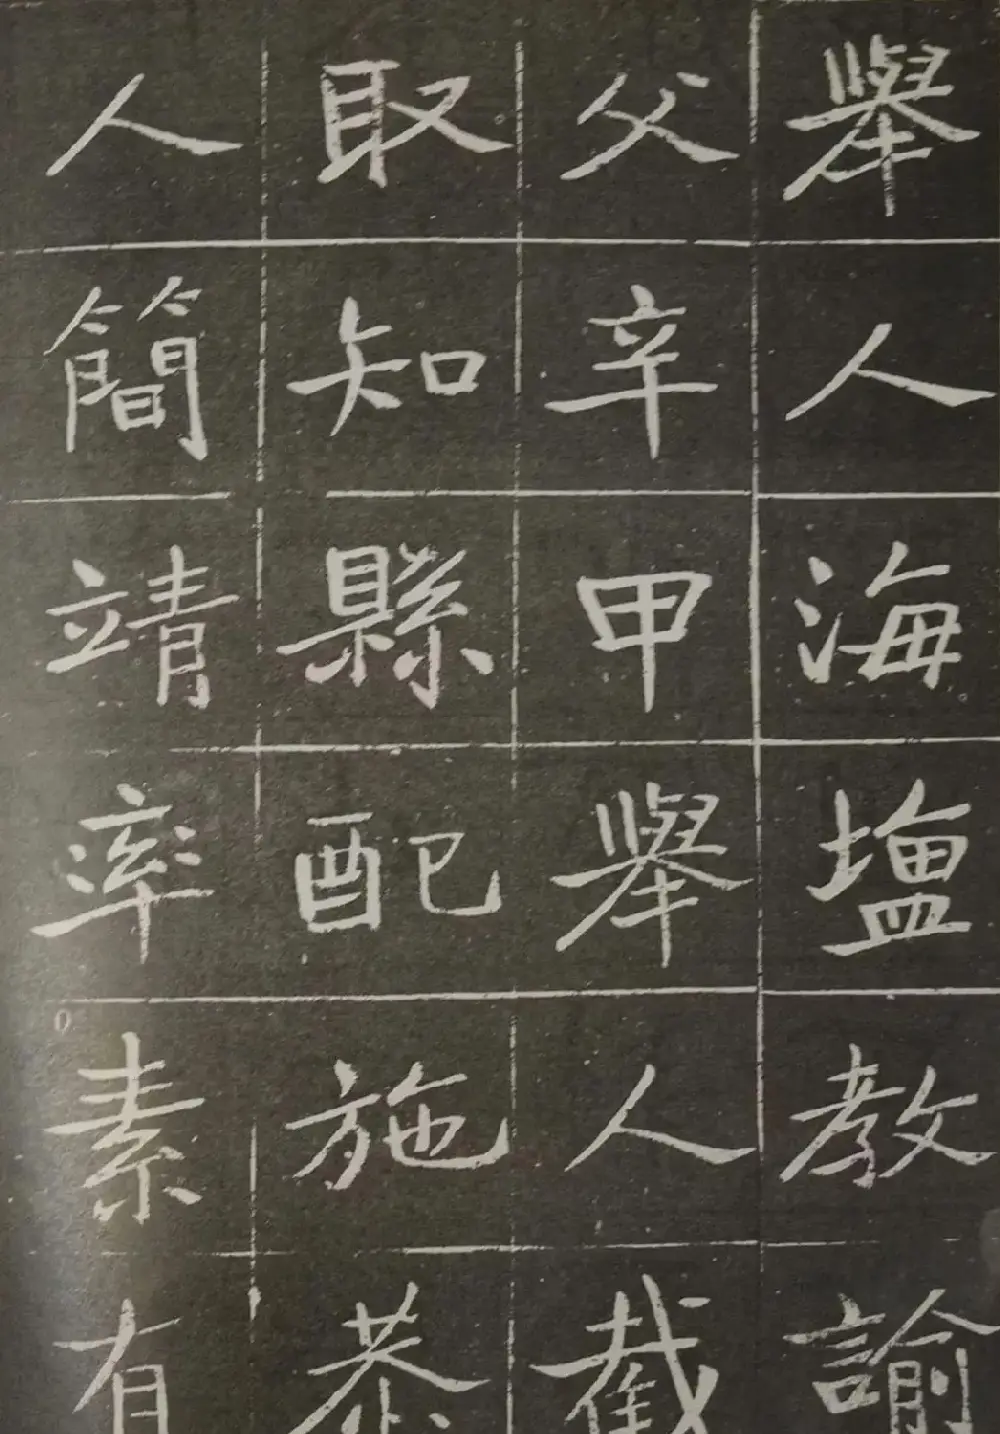 舉人海塩教諭
父辛甲舉人截
取知縣配施恭
人簡靖率素有